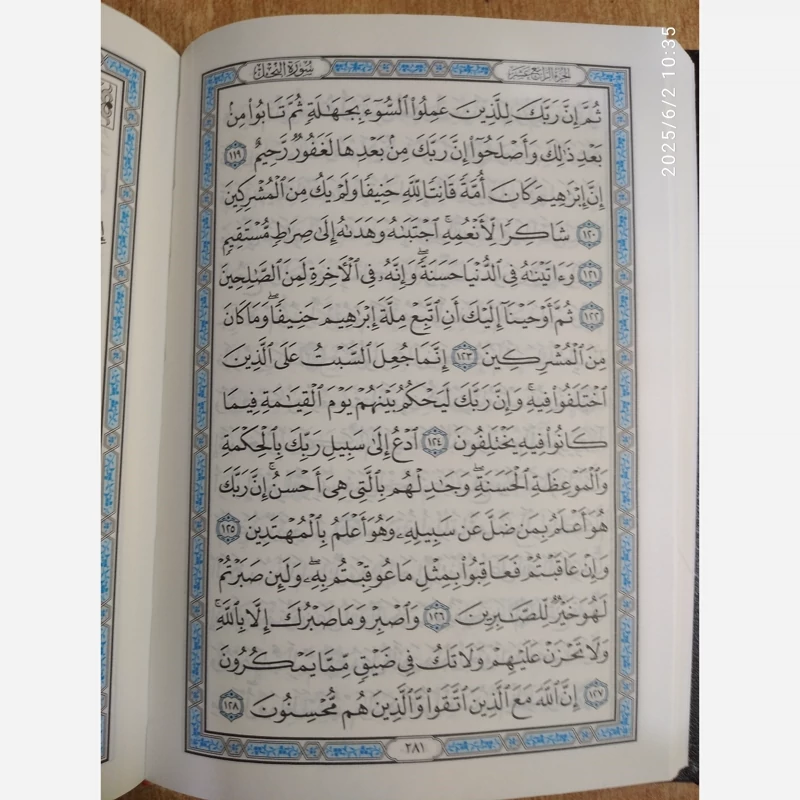 سُورَةُ النَّحْلِ
الجُزْءُ الرَّابِعَ عَشَرَ
ثُمَّ إِنَّ رَبَّكَ لِلَّذِينَ عَمِلُواْ ٱلسُّوٓءَ بِجَهَٰلَةٖ ثُمَّ تَابُواْ مِنۢ
بَعۡدِ ذَٰلِكَ وَأَصۡلَحُوٓاْ إِنَّ رَبَّكَ مِنۢ بَعۡدِهَا لَغَفُورٞ رَّحِيمٌ ١١٩
إِنَّ إِبۡرَٰهِيمَ كَانَ أُمَّةٗ قَانِتٗا لِّلَّهِ حَنِيفٗا وَلَمۡ يَكُ مِنَ ٱلۡمُشۡرِكِينَ
١٢٠ شَاكِرٗا لِّأَنۡعُمِهِۚ ٱجۡتَبَىٰهُ وَهَدَىٰهُ إِلَىٰ صِرَٰطٖ مُّسۡتَقِيمٖ
١٢١ وَءَاتَيۡنَٰهُ فِي ٱلدُّنۡيَا حَسَنَةٗۖ وَإِنَّهُۥ فِي ٱلۡأٓخِرَةِ لَمِنَ ٱلصَّٰلِحِينَ
١٢٢ ثُمَّ أَوۡحَيۡنَآ إِلَيۡكَ أَنِ ٱتَّبِعۡ مِلَّةَ إِبۡرَٰهِيمَ حَنِيفٗاۖ وَمَا كَانَ
مِنَ ٱلۡمُشۡرِكِينَ ١٢٣ إِنَّمَا جُعِلَ ٱلسَّبۡتُ عَلَى ٱلَّذِينَ
ٱخۡتَلَفُواْ فِيهِۚ وَإِنَّ رَبَّكَ لَيَحۡكُمُ بَيۡنَهُمۡ يَوۡمَ ٱلۡقِيَٰمَةِ فِيمَا
كَانُواْ فِيهِ يَخۡتَلِفُونَ ١٢٤ ٱدۡعُ إِلَىٰ سَبِيلِ رَبِّكَ بِٱلۡحِكۡمَةِ
وَٱلۡمَوۡعِظَةِ ٱلۡحَسَنَةِۖ وَجَٰدِلۡهُم بِٱلَّتِي هِيَ أَحۡسَنُۚ إِنَّ رَبَّكَ
هُوَ أَعۡلَمُ بِمَن ضَلَّ عَن سَبِيلِهِۦ وَهُوَ أَعۡلَمُ بِٱلۡمُهۡتَدِينَ ١٢٥
وَإِنۡ عَاقَبۡتُمۡ فَعَاقِبُواْ بِمِثۡلِ مَا عُوقِبۡتُم بِهِۦۖ وَلَئِن صَبَرۡتُمۡ
لَهُوَ خَيۡرٞ لِّلصَّٰبِرِينَ ١٢٦ وَٱصۡبِرۡ وَمَا صَبۡرُكَ إِلَّا بِٱللَّهِۚ
وَلَا تَحۡزَنۡ عَلَيۡهِمۡ وَلَا تَكُ فِي ضَيۡقٖ مِّمَّا يَمۡكُرُونَ
١٢٧ إِنَّ ٱللَّهَ مَعَ ٱلَّذِينَ ٱتَّقَواْ وَّٱلَّذِينَ هُم مُّحۡسِنُونَ ١٢٨
٢٨١
2025/6/2 10:35